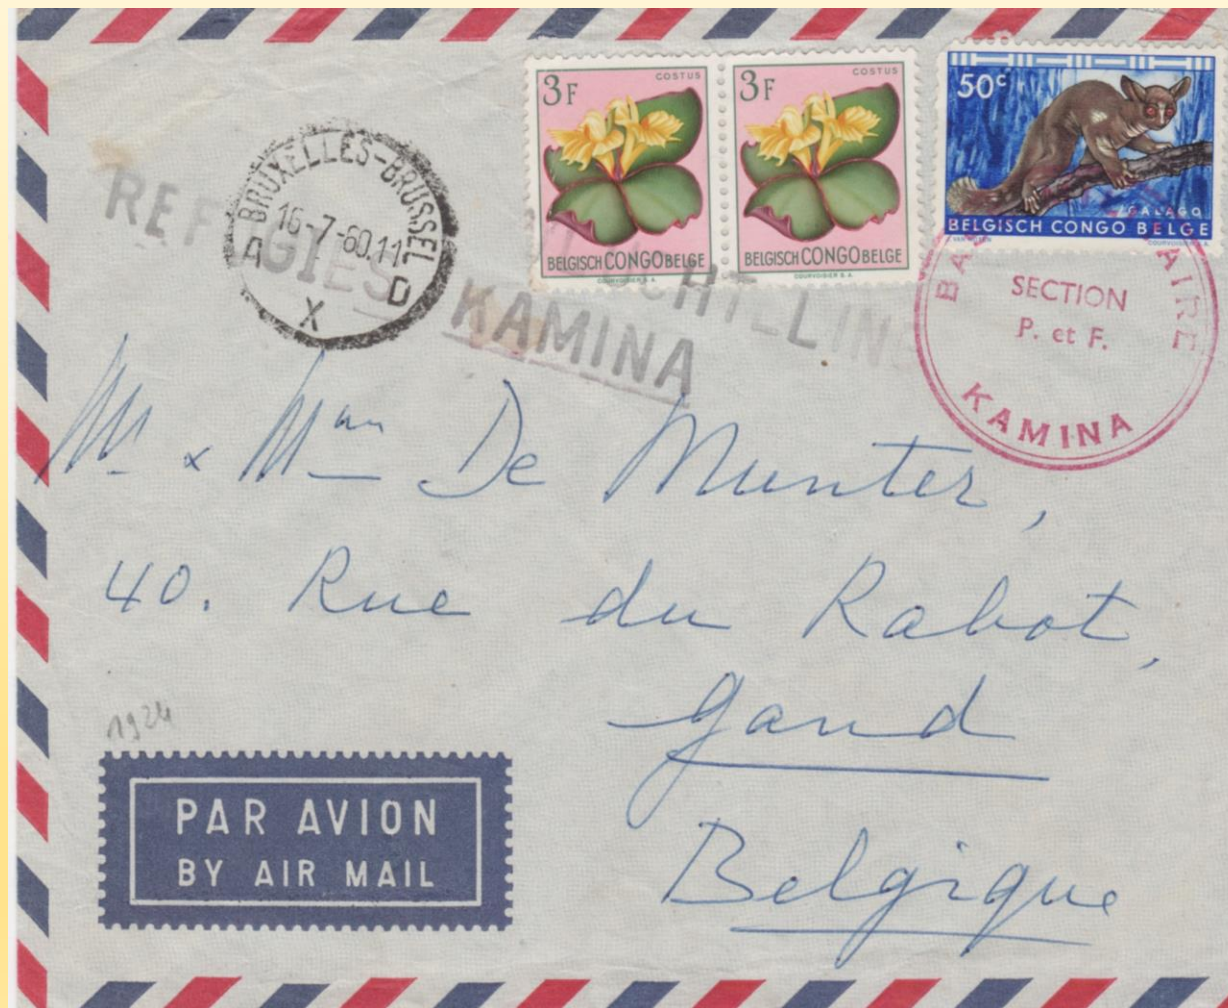 COSTUS
3F
BELGISCH CONGO BELGE
COURVOISIER S.A.
COSTUS
3F
BELGISCH CONGO BELGE
COURVOISIER S.A.
50c
GALAGO
BELGISCH CONGO BELGE
COURVOISIER S.A.
BRUXELLES-BRUSSEL
16-7-60.11
A X D
KAMINA
SECTION
P. et F.
KAMINA
Mr & Mme De Munter,
40. Rue du Rabot,
Gand
Belgique
1924
PAR AVION
BY AIR MAIL